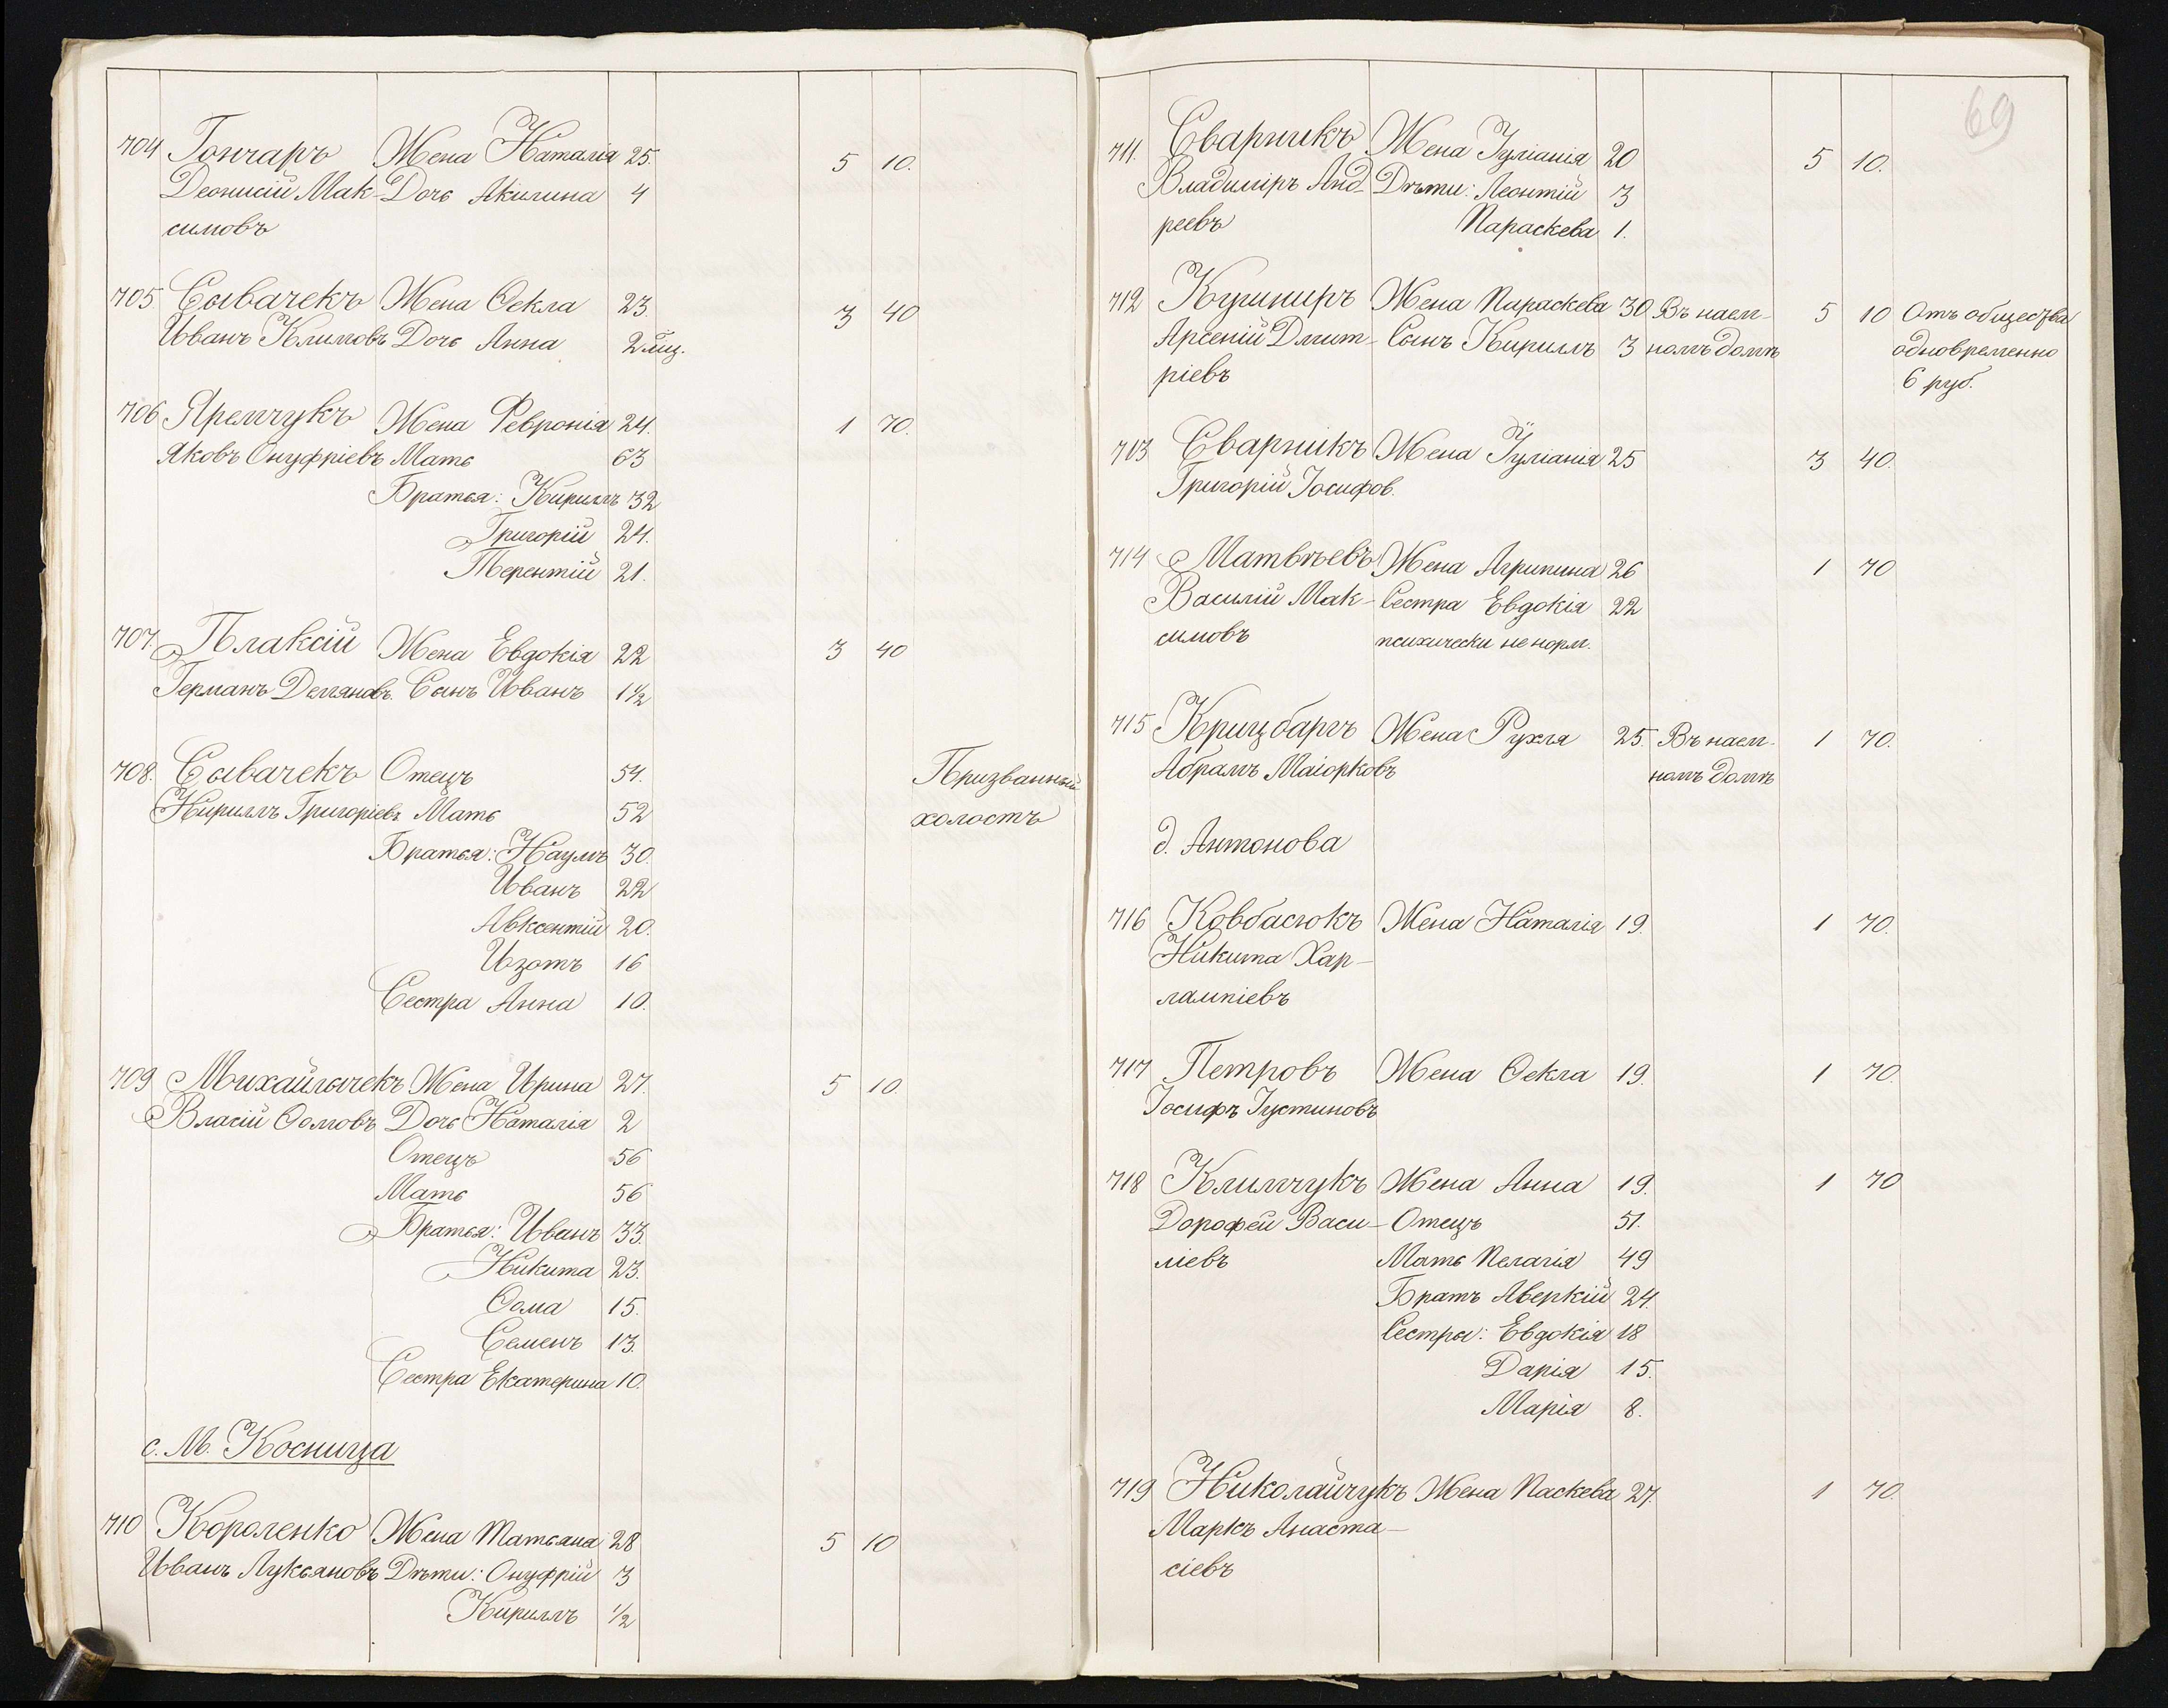 704 Гончаръ Жена Наталія 25. 5 10.
Деонисій Мак- Дочь Акилина 4
симовъ
705 Сывачекъ Жена Ѳекла 23. 3 40
Иванъ Климовъ Дочь Анна 2 мѣц.
706 Яремчукъ Жена Февронія 24. 1 70.
Яковъ Онуфріевъ Мать 63
Братья: Кириллъ 32
Григорій 24.
Терентій 21.
707. Плаксій Жена Евдокія 22 3 40
Германъ Демяновъ. Сынъ Иванъ 1 1/2
708. Сывачекъ Отецъ 54. Призванный
Кириллъ Григоріевъ Мать 52 холостъ
Братья: Наумъ 30.
Иванъ 22
Авксентій 20.
Изотъ 16
Сестра Анна 10.
709 Михайлычекъ Жена Ирина 27. 5 10.
Власій Ѳомовъ Дочь Наталія 2
Отецъ 56
Мать 56
Братья: Иванъ 33.
Никита 23.
Ѳома 15.
Семенъ 13.
Сестра Екатерина 10.
с. М. Косница
710 Короленко Жена Татьяна 28 5 10
Иванъ Лукьяновъ Дѣти: Онуфрій 3
Кириллъ 1/2
69
711. Сварникъ Жена Іуліанія 20 5 10.
Владиміръ Анд- Дѣти: Леонтій 3
реевъ Параскева 1.
712 Кушниръ Жена Параскева 30 Въ наем- 5 10 Отъ общества
Арсеній Дмит- Сынъ Кириллъ 3 номъ домѣ одновременно
ріевъ 6 руб.
713 Сварникъ Жена Іуліанія 25 3 40.
Григорій Іосифов.
714 Матвѣевъ Жена Агрипина 26 1 70
Василій Мак- Сестра Евдокія 22
симовъ психически не норм.
715 Крицбаргъ Жена Рухля 25. Въ наем- 1 70.
Абрамъ Маіорковъ номъ домѣ
д. Антонова
716 Ковбасюкъ Жена Наталія 19. 1 70.
Никита Хар-
лампіевъ
717 Петровъ Жена Ѳекла 19. 1 70.
Іосифъ Іустиновъ
718 Климчукъ Жена Анна 19. 1 70
Дорофей Васи- Отецъ 51.
ліевъ Мать Пелагія 49
Братъ Аверкій 24.
Сестры: Евдокія 18
Дарія 15.
Марія 8.
719 Николайчукъ Жена Паскева 27. 1 70.
Маркъ Анаста-
сіевъ